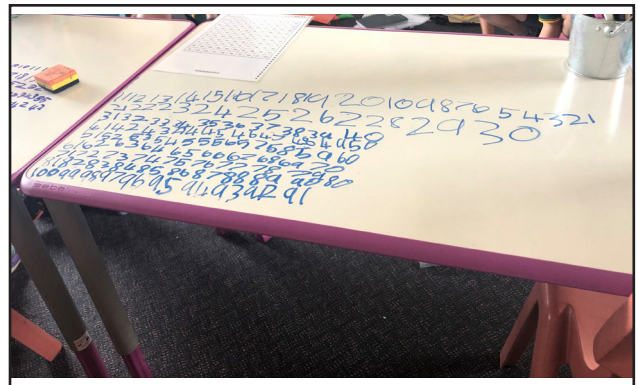 11 12 13 14 15 16 17 18 19 20 10 9 8 7 6 5 4 3 2 1
21 22 23 24 25 26 27 28 29 30
31 32 33 34 35 36 37 38 39 40
41 42 43 44 45 46 47 48 49 50
51 52 53 54 55 56 57 58 59 60
61 62 63 64 65 66 67 68 69 70
71 72 73 74 75 76 77 78 79 80
81 82 83 84 85 86 87 88 89 90
100 99 98 97 96 95 94 93 92 91